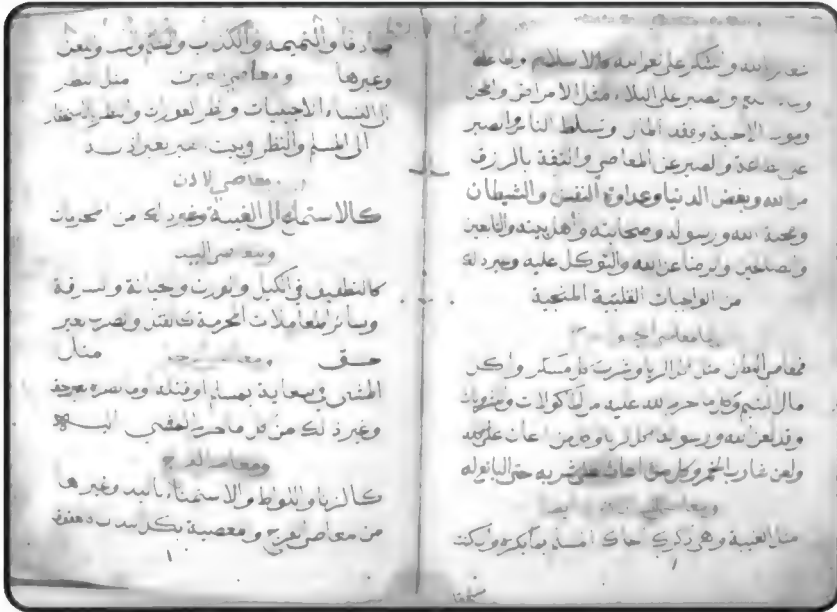 شعائر الله والشكر على نعم الله كالاسلام والطاعة
والصبر على البلاء مثل الامراض والمحن
وموت الاحبة وفقد المال وتسلط الناس والصبر
على الطاعة والصبر عن المعاصي والثقة بالرزق
من الله وبغض الدنيا وعداوة النفس والشيطان
ومحبة الله ورسوله وصحابته واهل بيته والتابعين
والصالحين والرضا عن الله والتوكل عليه وغير ذلك
من الواجبات القلبية المنجية
فمعاصي البطن مثل اكل الربا وشرب كل مسكر واكل
مال اليتيم وكل ما حرم الله عليه من المأكولات والمشروبات
وقد لعن الله ورسوله اكل الربا وكل من اعان على اكله
ولعن شارب الخمر وكل من اعان على شربه حتى البائع له
ومعاصي اللسان ايضا
مثل الغيبة وهي ذكرك اخاك المسلم بما يكره وان كنت
صادقا والنميمة والكذب والشتم والسب واللعن
وغيرها ومعاصي العين مثل النظر
الى النساء الاجنبيات ونظر العورات والنظر بالاستحقار
الى المسلم والنظر في بيت الغير بغير اذنه
ومعاصي الاذن
كالاستماع الى الغيبة وغير ذلك من المحرمات
ومعاصي اليد
كالتطفيف في الكيل والوزن والخيانة والسرقة
وسائر المعاملات المحرمة كالقتل والضرب بغير
حق ومعاصي الرجل مثل
المشي في سعاية بمسلم او قتله وما يضره بغير حق
وغير ذلك من كل ما حرم المشي اليه
ومعاصي الفرج
كالزنا واللواط والاستمناء باليد وغيرها
من معاصي الفرج والمعصية بكل البدن